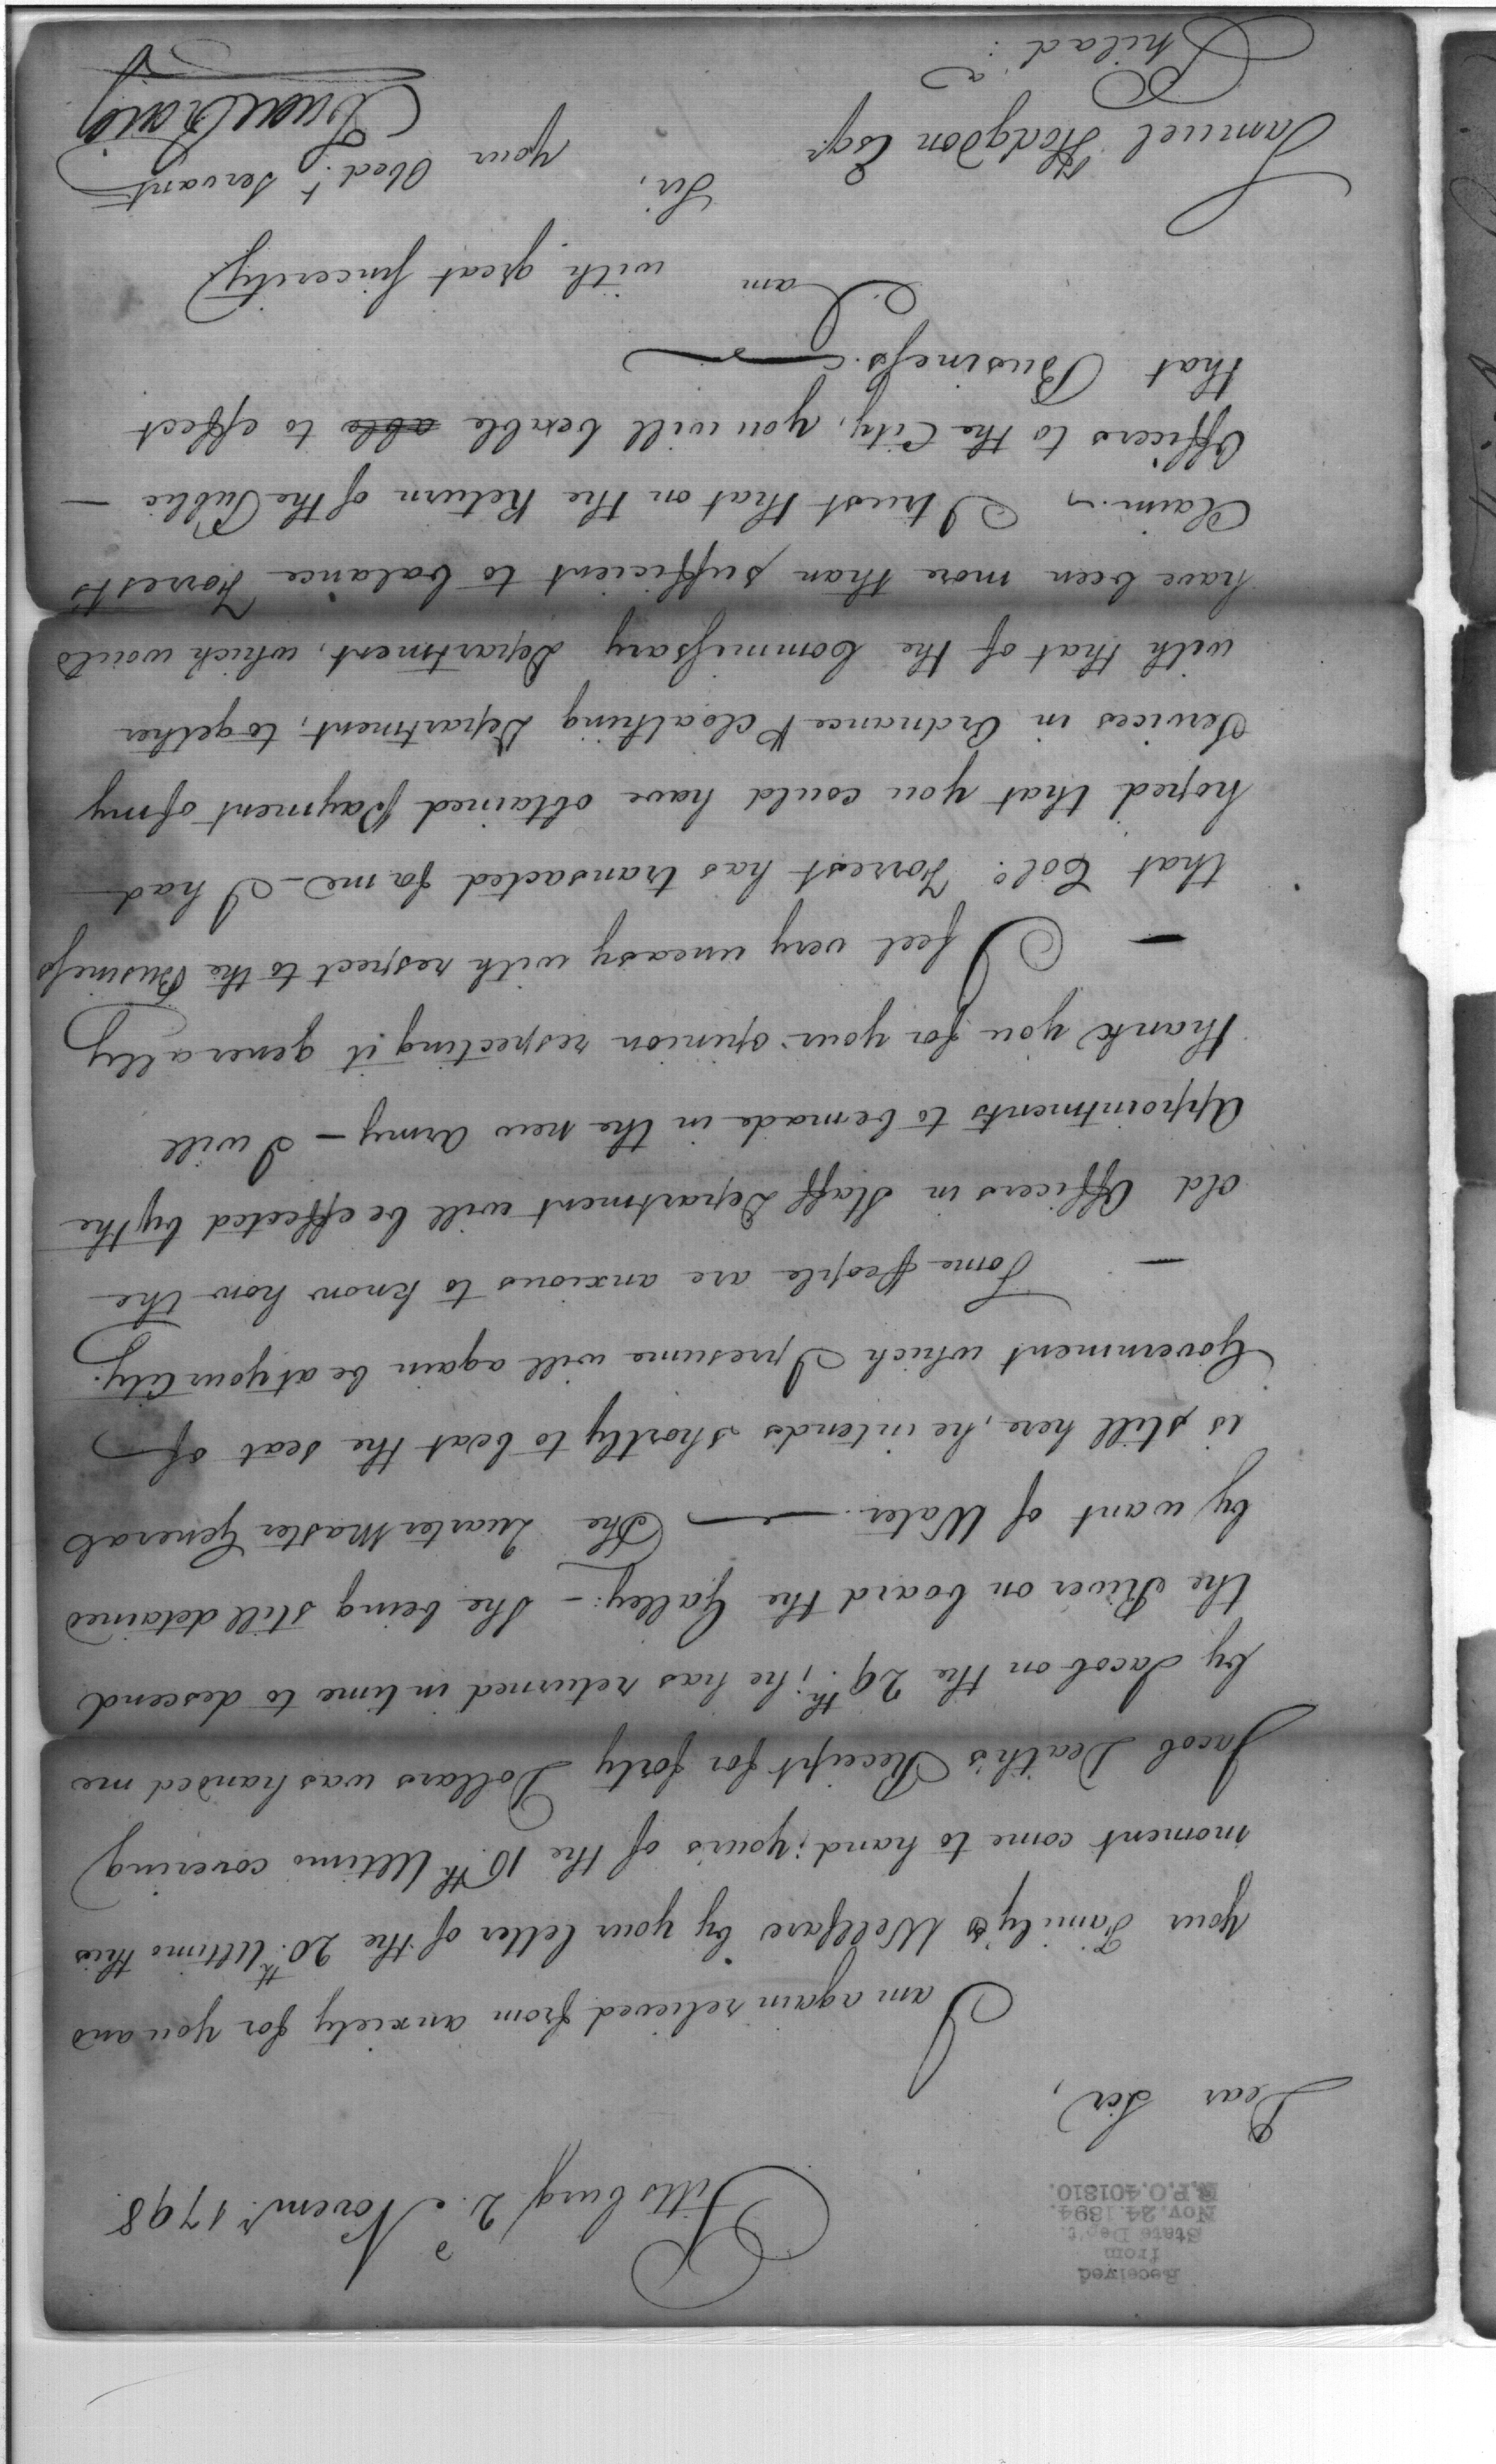 Received
from
State Dep't.
Nov. 24. 1894.
R.P.O. 401810.
Pittsburg 2.d Novem.r 1798.
Dear Sir,
I am again relieved from anxiety for you and
your Family's Wellfare by your letter of the 20.th Ultimo this
moment come to hand; yours of the 16.th Ultimo covering
Jacob Death's Receipt for forty Dollars was handed me
by Jacob on the 29.th; he has returned in time to descend
the River on board the Galley: - She being still detained
by want of Water. — The Quarter Master General
is still here, he intends shortly to be at the seat of
Government which I presume will again be at your City.
— Some People are anxious to know how the
old Officers in Staff Department will be effected by the
Appointments to be made in the new Army - I will
thank you for your opinion respecting it generally
— I feel very uneasy with respect to the Business
that Col.o Forrest has transacted for me - I had
hoped that you could have obtained Payment of my
Services in Ordnance & Cloathing Department, together
with that of the Commissary Department, which would
have been more than sufficient to balance Forrests
Claim. ~ I trust that on the Return of the Public —
Officers to the City, you will be able able to effect
that Business. —
I am with great sincerity
Sir,
your Obed.t Servant
Samuel Hodgdon Esq.r
Isaac Craig
Philad.a: